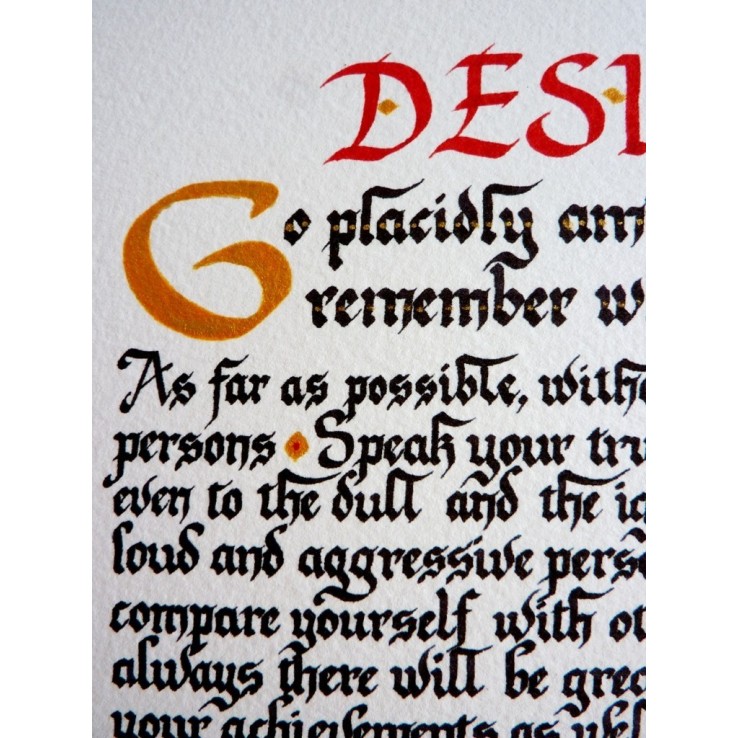 DESI
Go placidly am
remember w
As far as possible, witho
persons Speak your tru
even to the dull and the ig
loud and aggressive perso
compare yourself with ot
always there will be grea
your achievements as wel